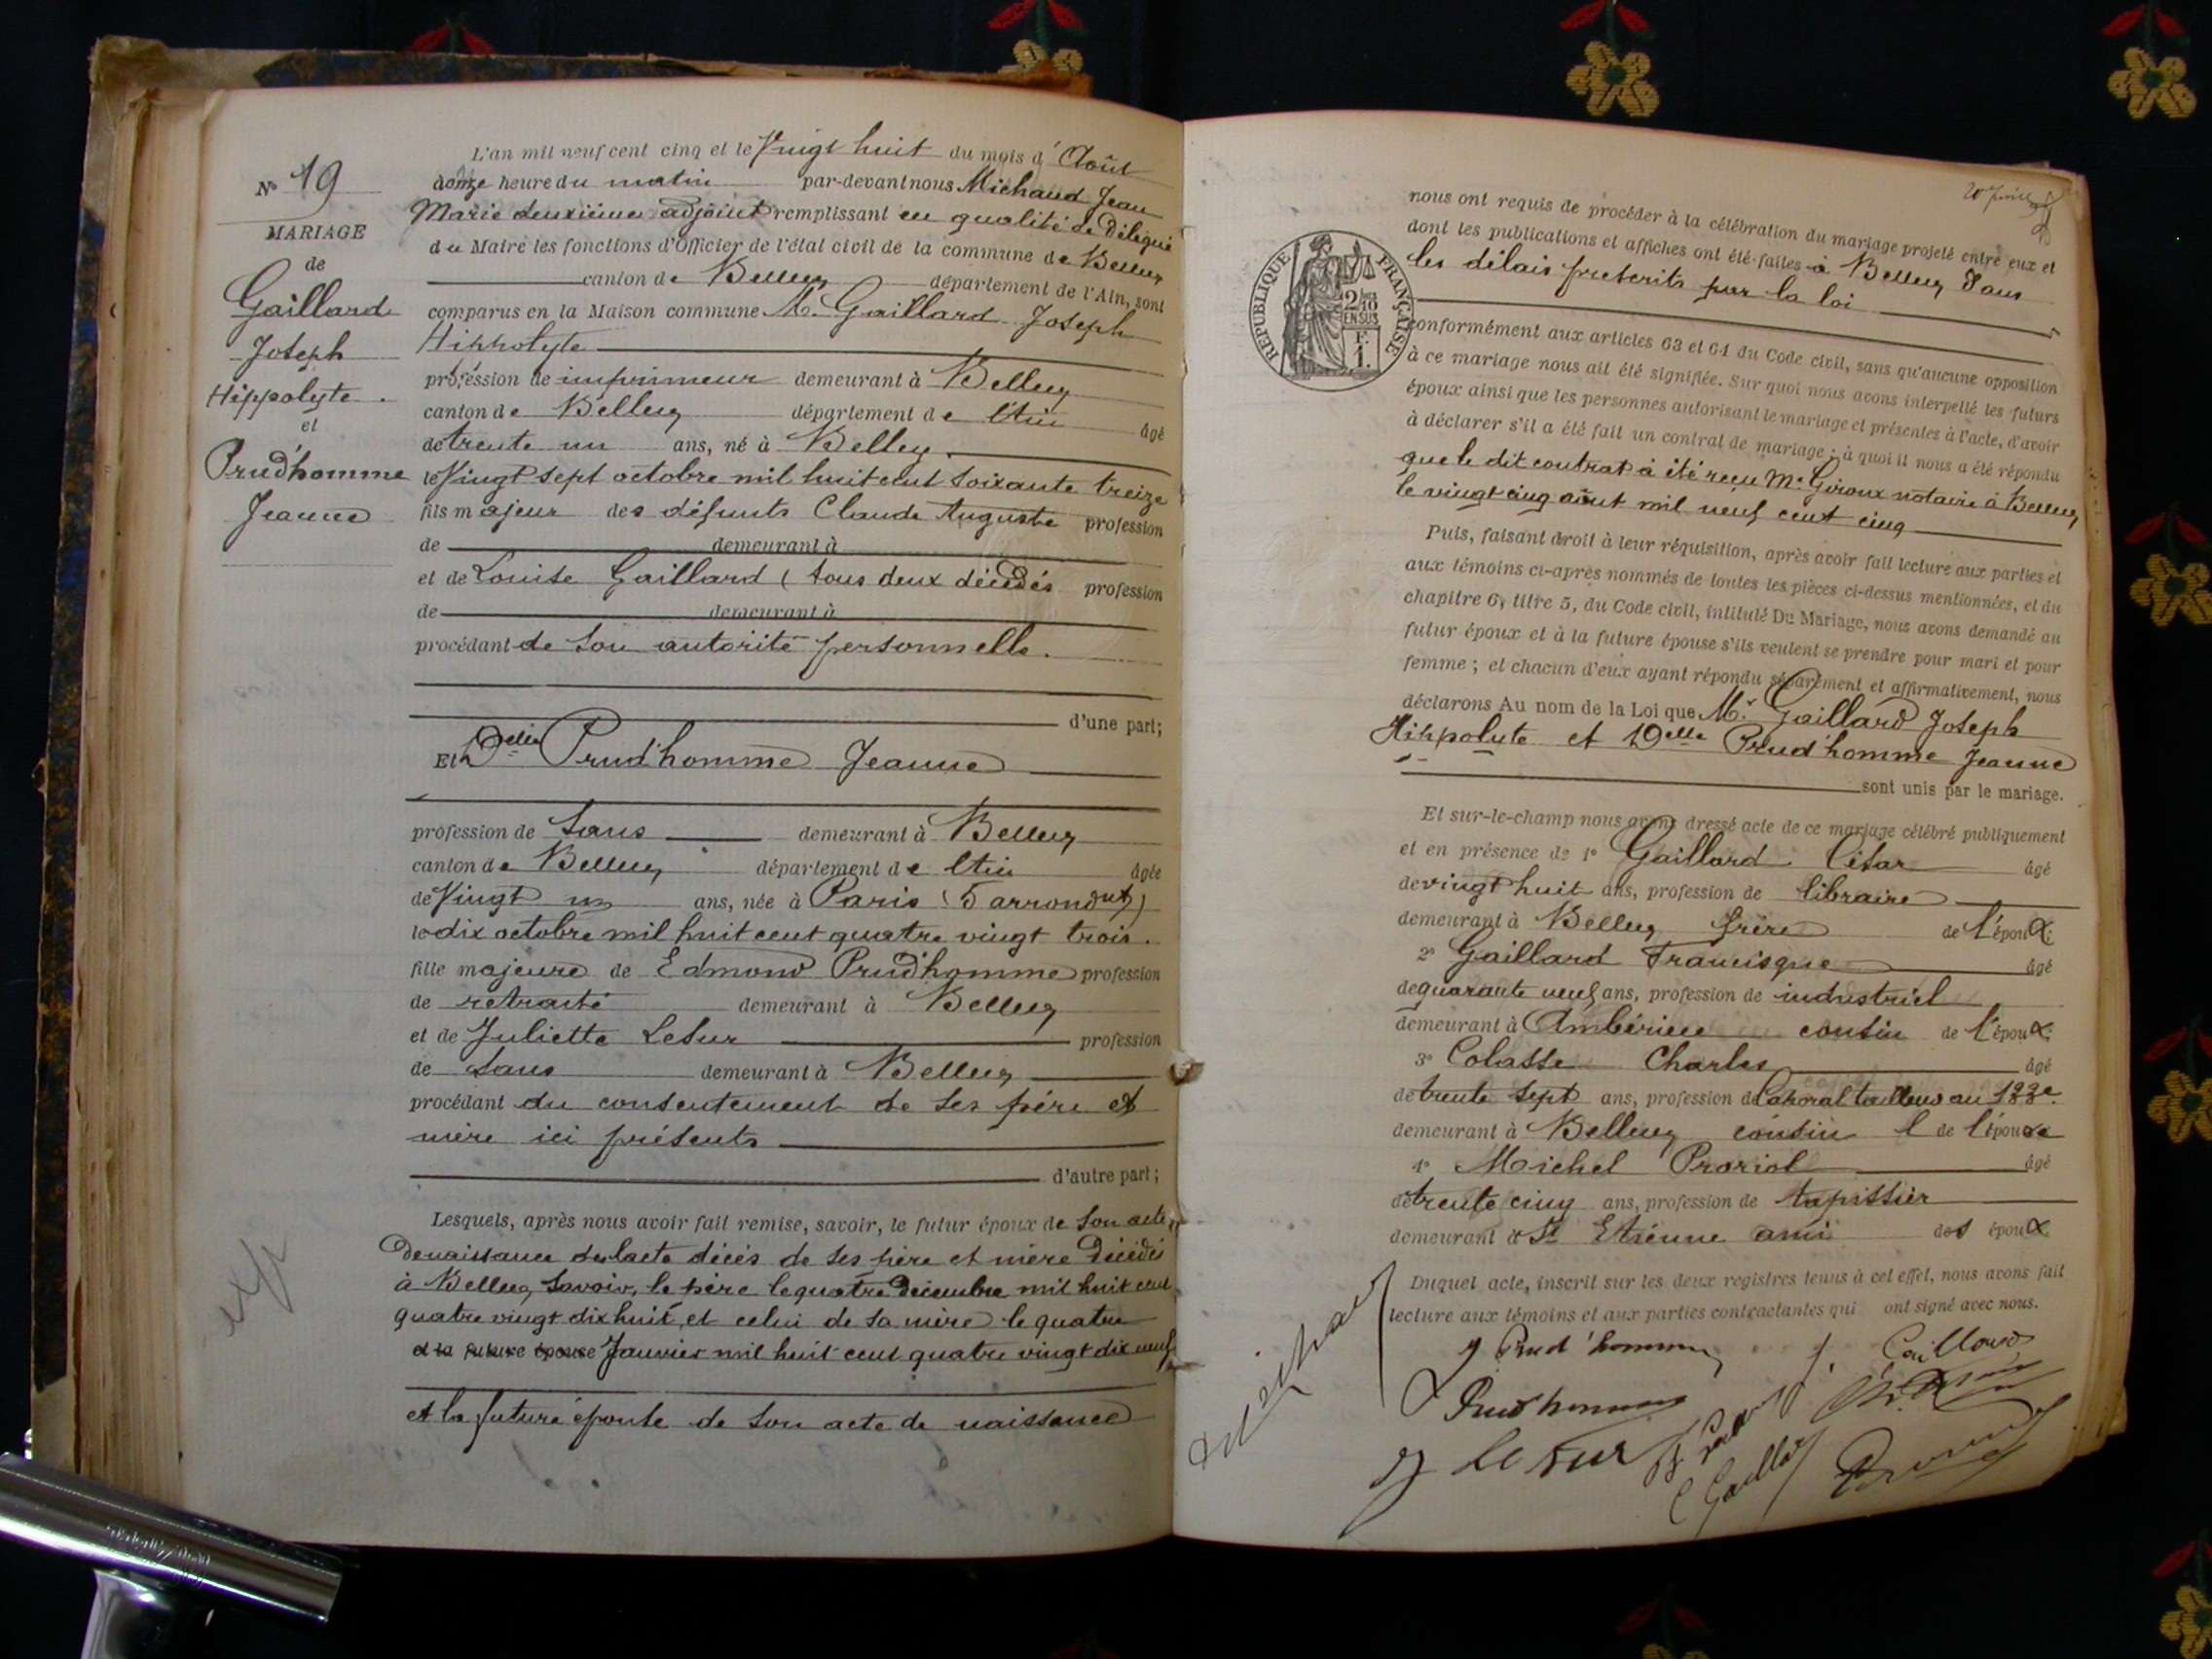 L'an mil neuf cent cinq et le Vingt huit du mois d'Août
N° 19
heure du matin par-devant nous Michaud Jean
Marie deuxième adjoint remplissant en qualité de Délégué
MARIAGE
du Maire les fonctions d'Officier de l'état civil de la commune de Belley
de
canton de Belley département de l'Ain, sont
Gaillard
comparus en la Maison commune M. Gaillard Joseph
Joseph
Hippolyte
Hippolyte.
profession de imprimeur demeurant à Belley
et
canton de Belley département de l'Ain âgé
Prud'homme
de trente un ans, né à Belley.
Jeanne
le Vingt sept octobre mil huit cent soixante treize
fils majeur des défunts Claude Auguste profession
de demeurant à
et de Louise Gaillard (tous deux décédés profession
de demeurant à
procédant de son autorité personnelle.
d'une part;
Et Delle Prud'homme Jeanne
profession de sans demeurant à Belley
canton de Belley département de l'Ain âgée
de Vingt un ans, née à Paris (5 arrondnt)
le dix octobre mil huit cent quatre vingt trois.
fille majeure de Edmond Prud'homme profession
de retraité demeurant à Belley
et de Juliette Lesur profession
de sans demeurant à Belley
procédant du consentement de ses père et
mère ici présents
d'autre part;
Lesquels, après nous avoir fait remise, savoir, le futur époux de son acte
De naissance de l'acte décès de ses père et mère Décédés
à Belley, savoir, le père le quatre Décembre mil huit cent
quatre vingt dix huit, et celui de sa mère le quatre
et la future épouse Janvier mil huit cent quatre vingt dix neuf
et la future épouse de son acte de naissance
exp
nous ont requis de procéder à la célébration du mariage projeté entre eux et
dont les publications et affiches ont été faites à Belley Dans
les délais prescrits par la loi
RÉPUBLIQUE FRANÇAISE
2/10
EN SUS
F.
1.
conformément aux articles 63 et 64 du Code civil, sans qu'aucune opposition
à ce mariage nous ait été signifiée. Sur quoi nous avons interpellé les futurs
époux ainsi que les personnes autorisant le mariage et présentes à l'acte, d'avoir
à déclarer s'il a été fait un contrat de mariage; à quoi il nous a été répondu
que le dit contrat à été reçu Me Giroux notaire à Belley
le vingt cinq août mil neuf cent cinq
Puis, faisant droit à leur réquisition, après avoir fait lecture aux parties et
aux témoins ci-après nommés de toutes les pièces ci-dessus mentionnées, et du
chapitre 6, titre 5, du Code civil, intitulé Du Mariage, nous avons demandé au
futur époux et à la future épouse s'ils veulent se prendre pour mari et pour
femme; et chacun d'eux ayant répondu séparément et affirmativement, nous
déclarons Au nom de la Loi que Mr Gaillard Joseph
Hippolyte et Delle Prud'homme Jeanne
sont unis par le mariage.
Et sur-le-champ nous avons dressé acte de ce mariage célébré publiquement
et en présence de 1° Gaillard César âgé
de vingt huit ans, profession de libraire
demeurant à Belley frère de l'époux
2° Gaillard Francisque âgé
de quarante neuf ans, profession de industriel
demeurant à Ambérieu cousin de l'époux
3° Colasse Charles âgé
de trente sept ans, profession de Caporal tailleur au 133e
demeurant à Belley cousin de l'épouse
4° Michel Proriol âgé
de trente cinq ans, profession de tapissier
demeurant à St Etienne ami des époux
Duquel acte, inscrit sur les deux registres tenus à cet effet, nous avons fait
lecture aux témoins et aux parties contractantes qui ont signé avec nous.
J Prud'homme J. Gaillard
Prudhomme
J Lesur
C Gaillard